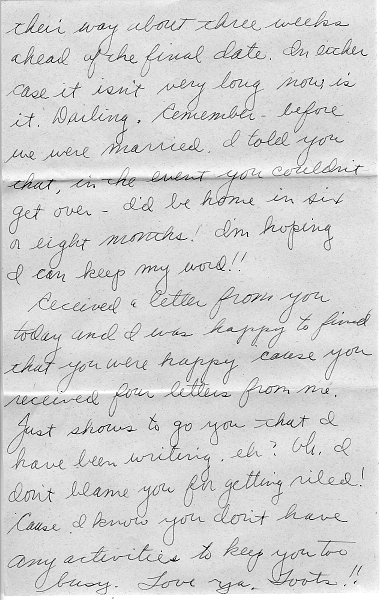 their way about three weeks
ahead of the final date. In either
case it isn't very long now, is
it. Darling. Remember - before
we were married. I told you
that, in the event you couldn't
get over - I'd be home in six
or eight months! I'm hoping
I can keep my word!!
Received a letter from you
today and I was happy to find
that you were happy cause you
received four letters from me.
Just shows to go you that I
have been writing, eh? Oh, I
don't blame you for getting riled!
Cause I know you don't have
any activities to keep you too
busy. Love ya, Toots!!